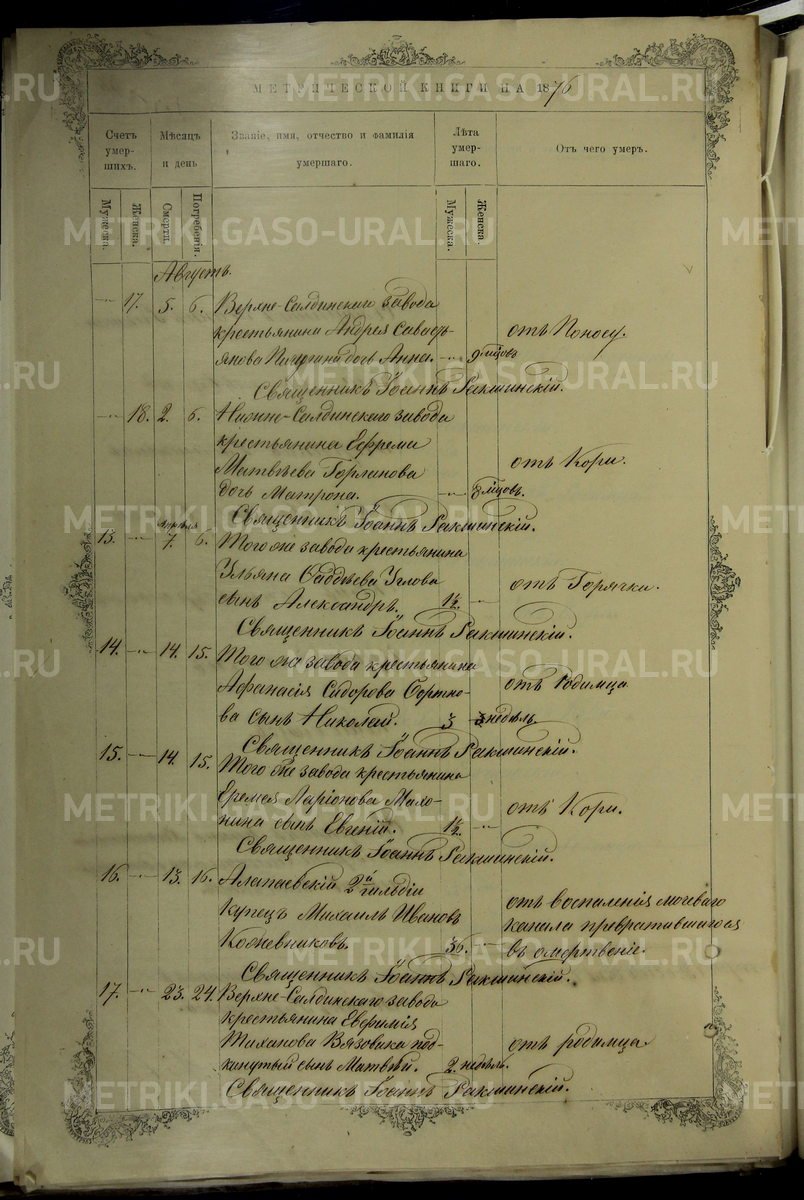 МЕТРИЧЕСКОЙ КНИГИ НА 1876
Счетъ умер-шихъ. Мѣсяцъ и день Званіе, имя, отчество и фамилія умершаго. Лѣта умер-шаго. Отъ чего умеръ.
Мужеска. Женска. Смерти. Погребенія. Мужеска. Женска.
Августъ.
17. 5. 6. Верхне-Салдинскаго завода
крестьянина Андрея
дочь Анна. 9 мѣсцовъ отъ Поносу.
Священникъ Іоаннъ Ракшинскій.
18. 2. 6. Нижне-Салдинскаго завода
крестьянина Ефрема
Матвѣева Горланова отъ Кори.
дочь Матрона. 8 мѣсцовъ.
Священникъ Іоаннъ Ракшинскій.
7. 6. Того же завода крестьянина
Ульяна Фаддѣева Углова отъ Горячки.
сынъ Александръ. 1½.
Священникъ Іоаннъ Ракшинскій.
14. 14. 15. Того же завода крестьянина
Афанасія Сидорова отъ Родимца
сынъ Николай. 3 недѣль.
Священникъ Іоаннъ Ракшинскій.
15. 14. 15. Того же завода крестьянина
Еремея Ларіонова Махо-
нина сынъ Евгеній. 1½. отъ Кори.
Священникъ Іоаннъ Ракшинскій.
16. 13. 16. Алапаевскій 2й гильдіи
Купецъ Михаилъ Ивановъ отъ воспаленія мочеваго
Кожевниковъ. 36. канала превратившагося
въ омертвеніе.
Священникъ Іоаннъ Ракшинскій.
17. 23. 24. Верхне-Салдинскаго завода
крестьянина Евфимія
Вязовика под- отъ родимца.
кинутый сынъ Матвѣй. 2 недѣль.
Священникъ Іоаннъ Ракшинскій.
METRIKI.GASO-URAL.RU